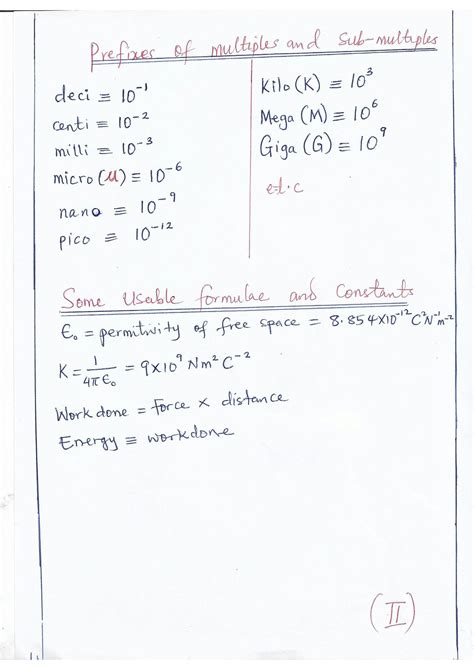 Prefixes of multiples and Sub-multiples
deci ≡ 10⁻¹
centi ≡ 10⁻²
milli ≡ 10⁻³
micro (μ) ≡ 10⁻⁶
nano ≡ 10⁻⁹
pico ≡ 10⁻¹²
Kilo (K) ≡ 10³
Mega (M) ≡ 10⁶
Giga (G) ≡ 10⁹
e.t.c
Some Useable formulae and Constants
ε₀ = permitivity of free space = 8.854×10⁻¹² C²N⁻¹m⁻²
K = 1/4πε₀ = 9×10⁹ Nm²C⁻²
Work done = force × distance
Energy ≡ workdone
(II)